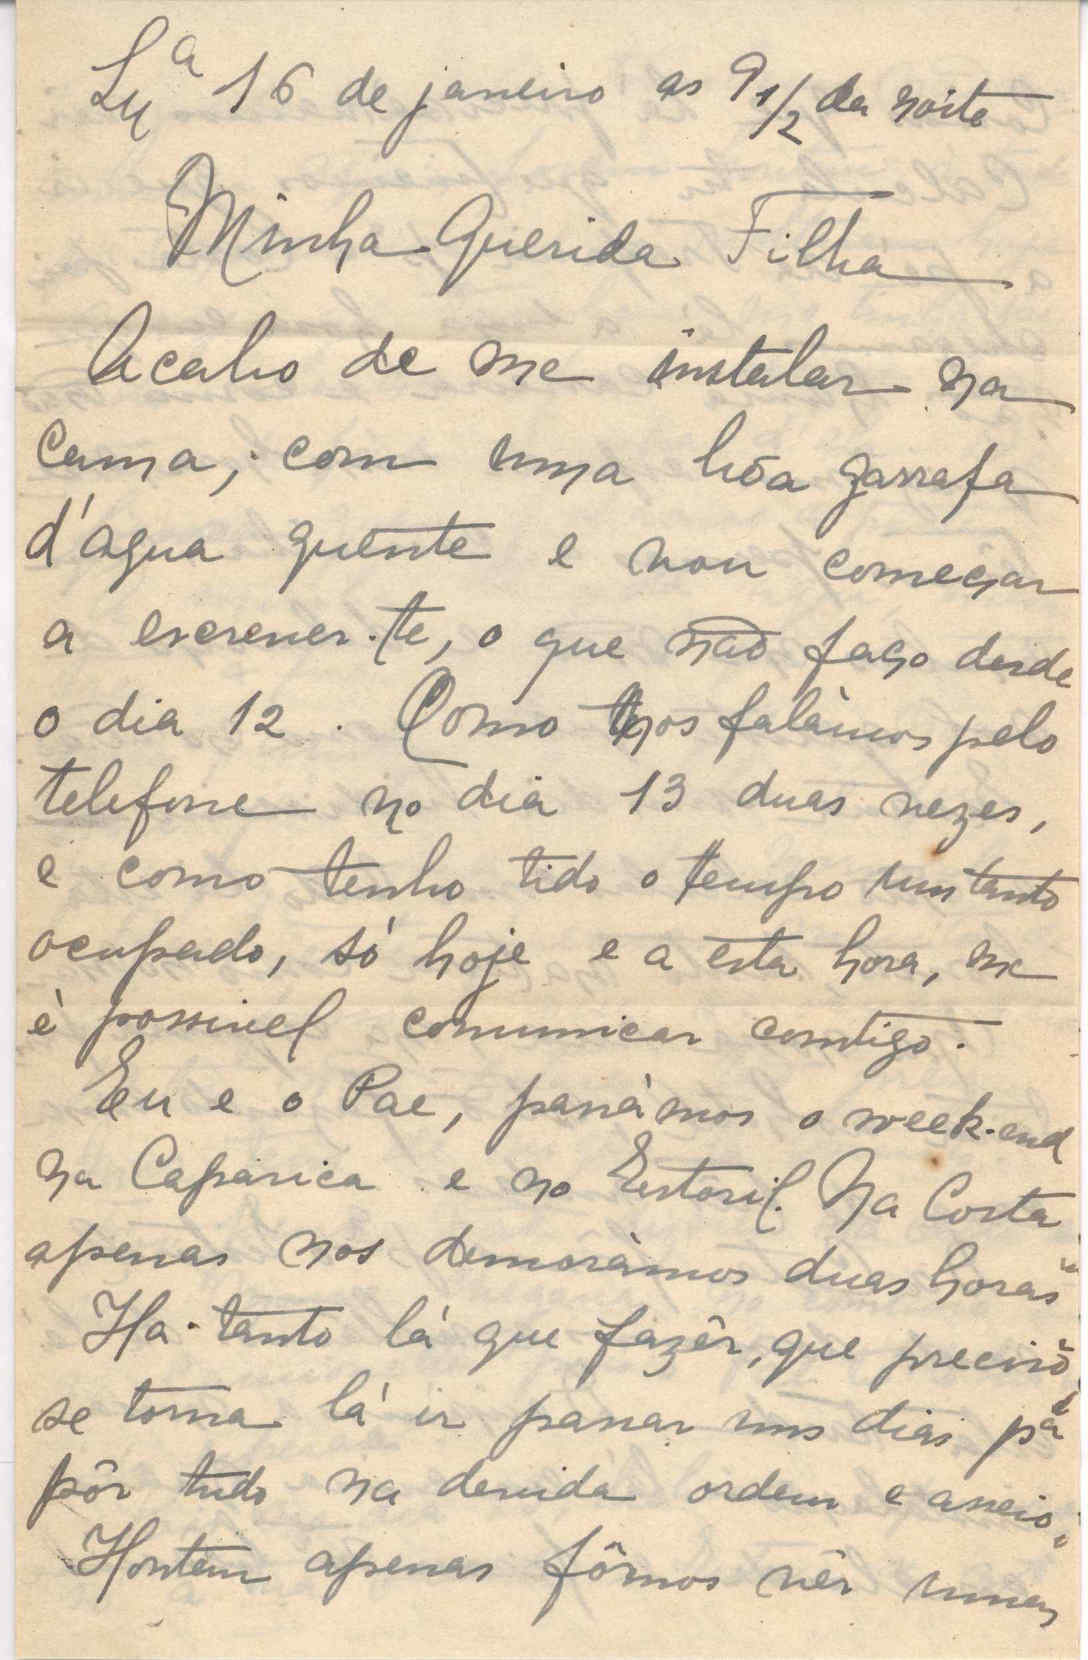 Lxª 16 de janeiro as 9 1/2 da noite
Minha Querida Filha
Acabo de me instalar na
Cama, com uma bôa garrafa
d'agua quente e vou começar
a escrever-te, o que não faço desde
o dia 12. Como nos falàmos pelo
telefone no dia 13 duas vezes,
e como tenho tido o tempo um tanto
ocupado, só hoje e a esta hora, me
è possivel comunicar comtigo.
Eu e o Pae, passàmos o week-end
na Caparica e no Estoril. Na Costa
apenas nos demoràmos duas horas
Ha tanto lá que fazêr, que preciso
se torna lá ir passar uns dias pª
pôr tudo na devida ordem e asseio.
Hontem apenas fômos vêr umas